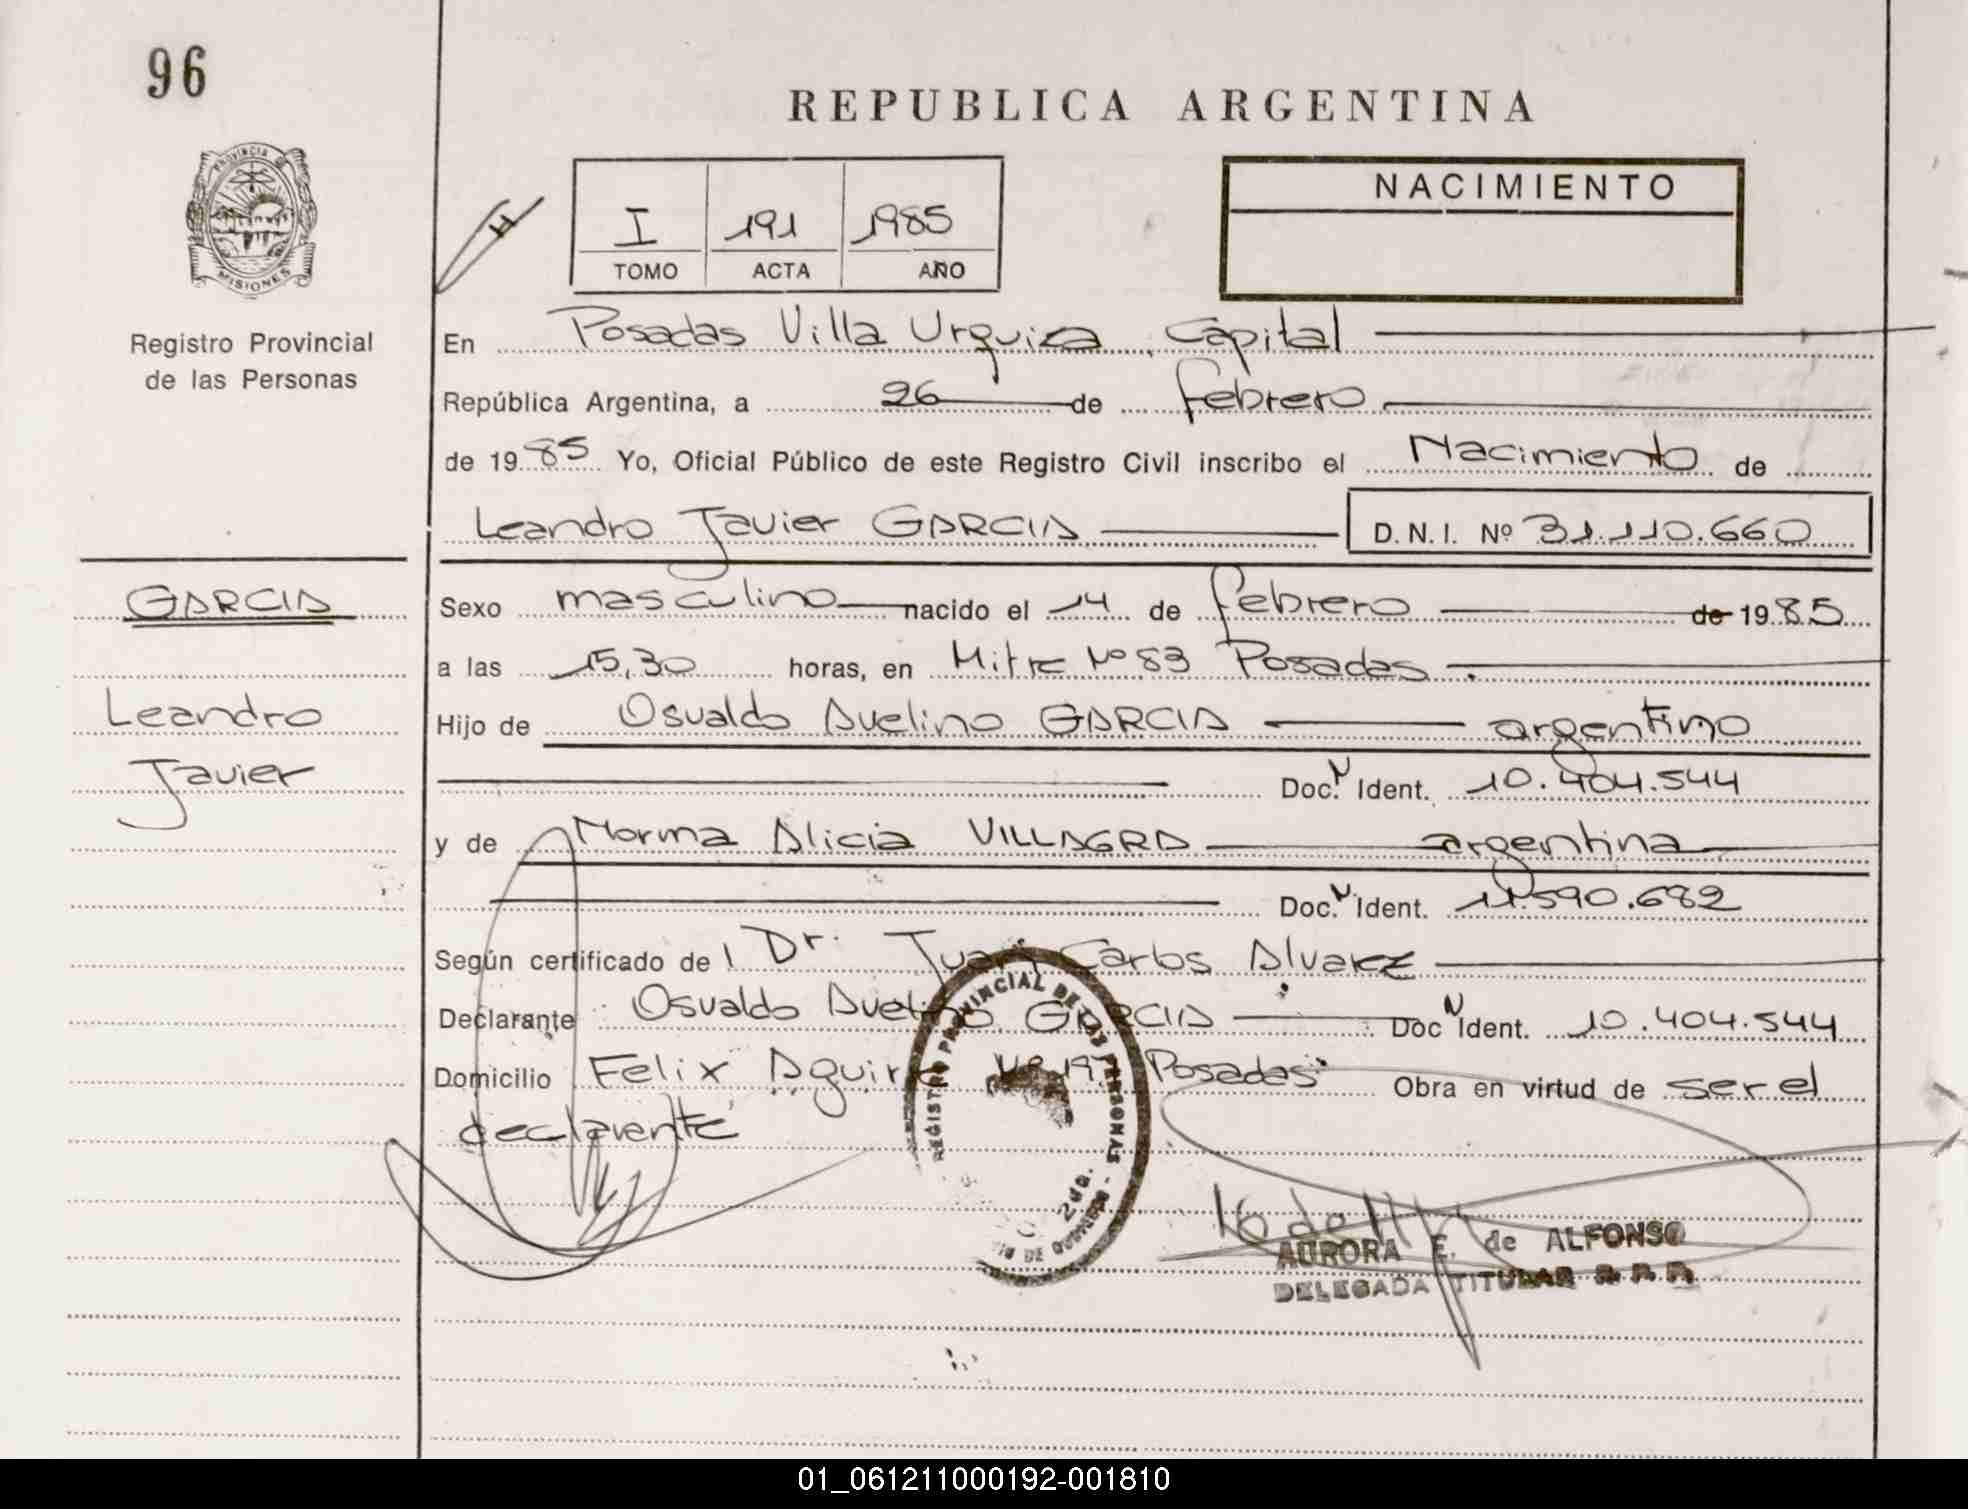 96
REPUBLICA ARGENTINA
PROVINCIA DE
MISIONES
Registro Provincial
de las Personas
NACIMIENTO
I 191 1985
TOMO ACTA AÑO
En Posadas Villa Urquiza, Capital
República Argentina, a 26 de febrero
de 1985 Yo, Oficial Público de este Registro Civil inscribo el Nacimiento de
Leandro Javier GARCIA D.N.I. Nº 31.110.660
GARCIA
Leandro
Javier
Sexo masculino nacido el 14 de febrero de 1985
a las 15,30 horas, en Mitre Nº 83 Posadas.
Hijo de Osvaldo Avelino GARCIA argentino
Doc. N Ident. 10.404.544
y de Norma Alicia VILLAGRA argentina
Doc. N Ident. 11.590.682
Según certificado del Dr. Juan Carlos Alvarez
Declarante Osvaldo Avelino GARCIA Doc N Ident. 10.404.544
Domicilio Felix Aguirre Posadas Obra en virtud de ser el
declarante
REGISTRO PROVINCIAL DE LAS PERSONAS
2da.
AURORA E. de ALFONSO
DELEGADA TITULAR R. P. P.
01_061211000192-001810